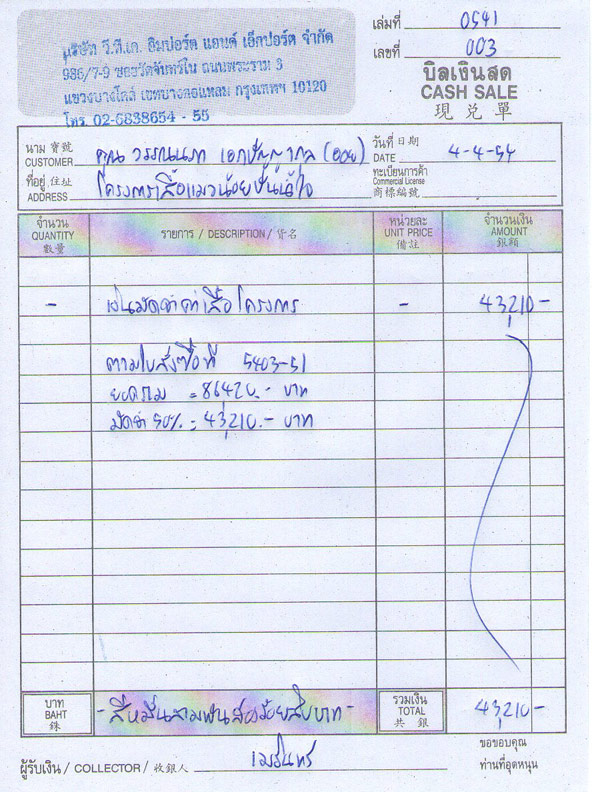 บริษัท วี.ที.เค. อิมปอร์ต แอนด์ เอ็กปอร์ต จำกัด
986/7-9 ซอยวัดจันทร์ใน ถนนพระราม 3
แขวงบางโคล่ เขตบางคอแหลม กรุงเทพฯ 10120
โทร. 02-6838654 - 55
เล่มที่ 0541
เลขที่ 003
บิลเงินสด
CASH SALE
現兑單
นาม 寶號 CUSTOMER คุณ วรรณนภา (ออย)
วันที่ 日期 DATE 4-4-54
ที่อยู่ 住址 ADDRESS โครงการเสื้อแมวน้อยปันน้ำใจ
ทะเบียนการค้า Commercial License 商標編號
จำนวน QUANTITY 數量
รายการ / DESCRIPTION / 貨名
หน่วยละ UNIT PRICE 備註
จำนวนเงิน AMOUNT 銀額
- เงินมัดจำค่าเสื้อโครงการ - 43,210 -
ตามใบสั่งซื้อที่ 5403-51
ยอดรวม = 86420.- บาท
มัดจำ 50% = 43,210.- บาท
บาท BAHT 銖 - สี่หมื่นสามพันสองร้อยสิบบาท -
รวมเงิน TOTAL 共銀 43,210 -
ผู้รับเงิน / COLLECTOR / 收銀人 เมธินทร์
ขอขอบคุณ
ท่านที่อุดหนุน